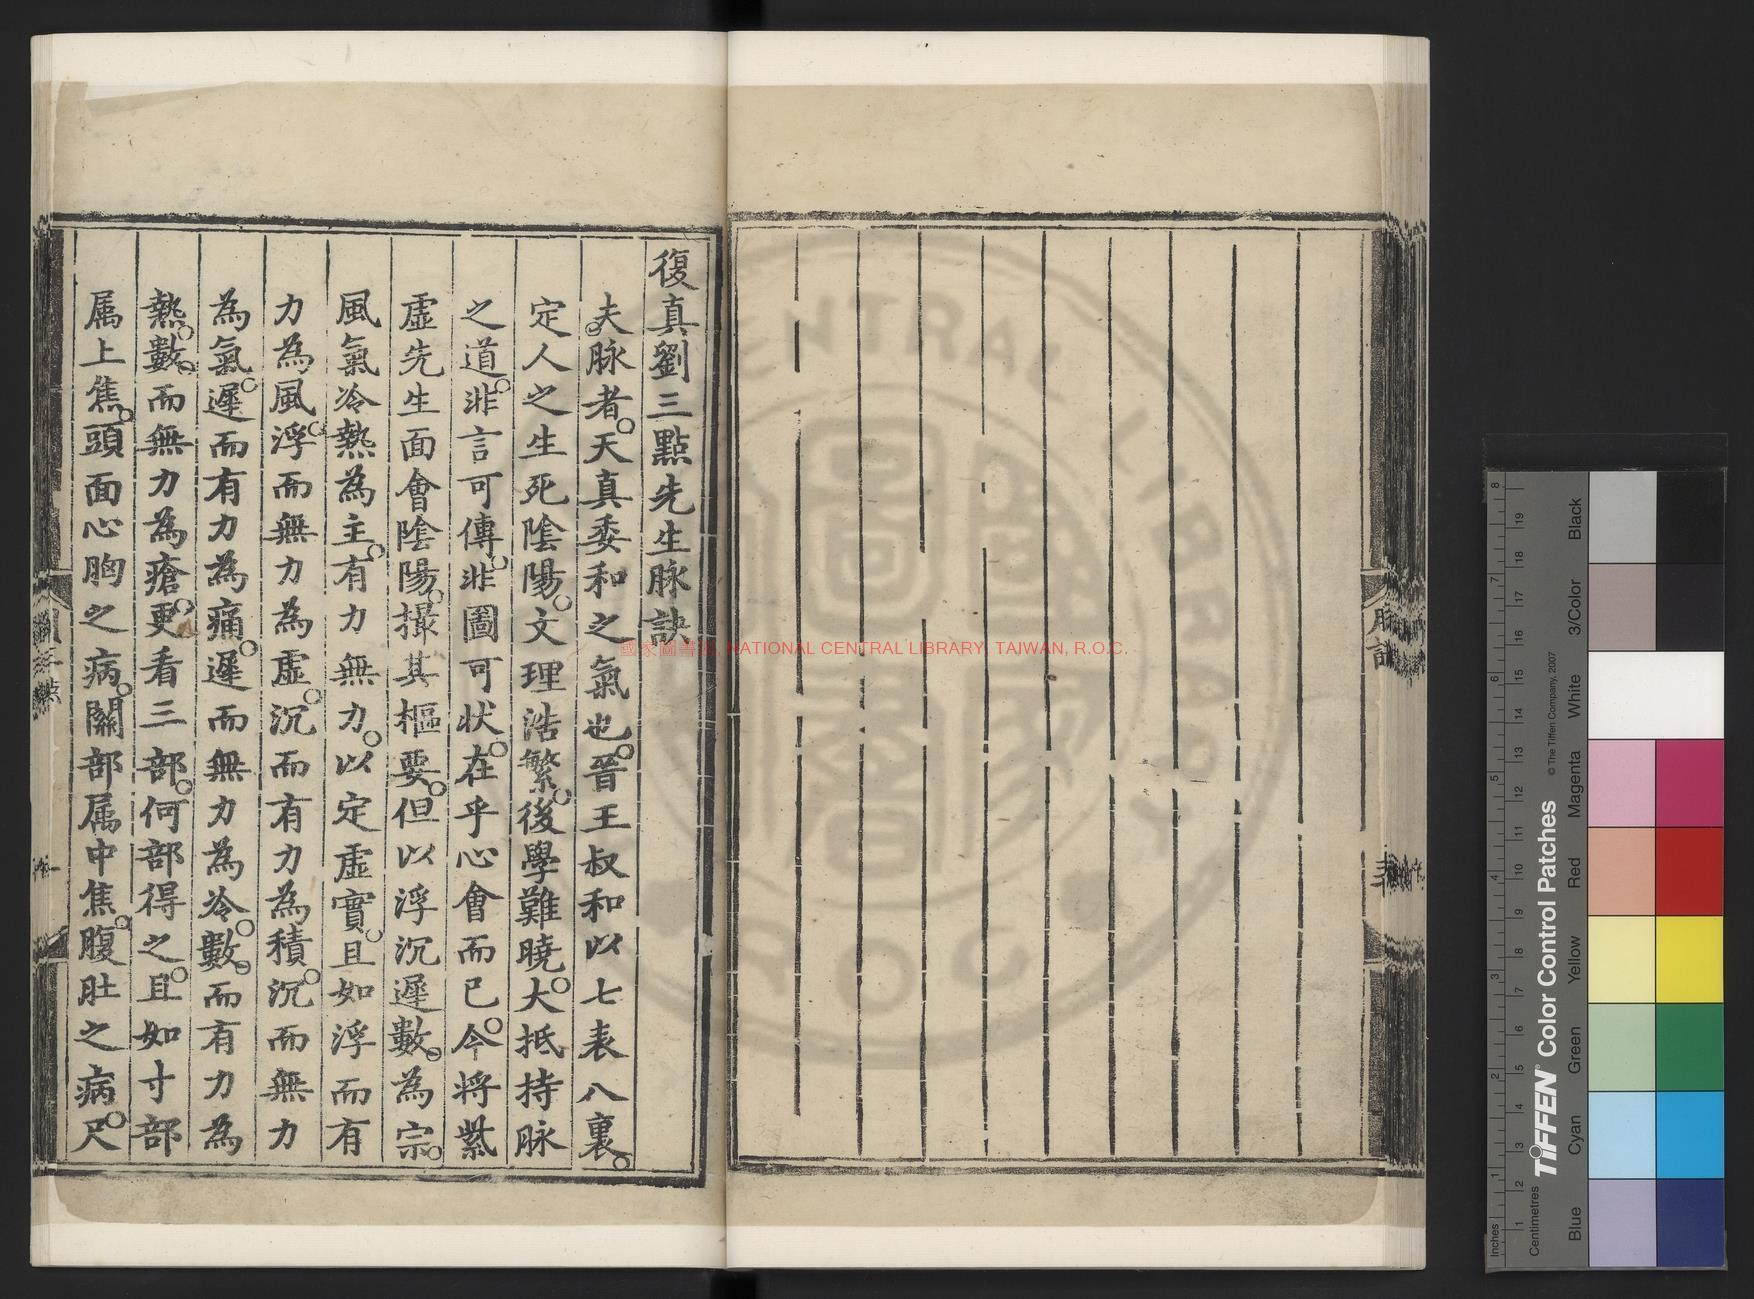 復真劉三點先生脉訣
夫脉者天真委和之氣也晉王叔和以七表八裏
定人之生死陰陽文理浩繁後學難曉大抵持脉
之道非言可傳非圖可狀在乎心會而已今將紫
虛先生面會陰陽撮其樞要但以浮沉遲數為宗
風氣冷熱為主有力無力以定虛實且如浮而有
力為風浮而無力為虛沉而有力為積沉而無力
為氣遲而有力為痛遲而無力為冷數而有力為
熱數而無力為瘡更看三部何部得之且如寸部
属上焦頭面心胸之病關部属中焦腹肚之病尺
國家圖書館, NATIONAL CENTRAL LIBRARY, TAIWAN, R.O.C.
TIFFEN® Color Control Patches
© The Tiffen Company, 2007
Inches
Centimetres
Blue
Cyan
Green
Yellow
Red
Magenta
White
3/Color
Black